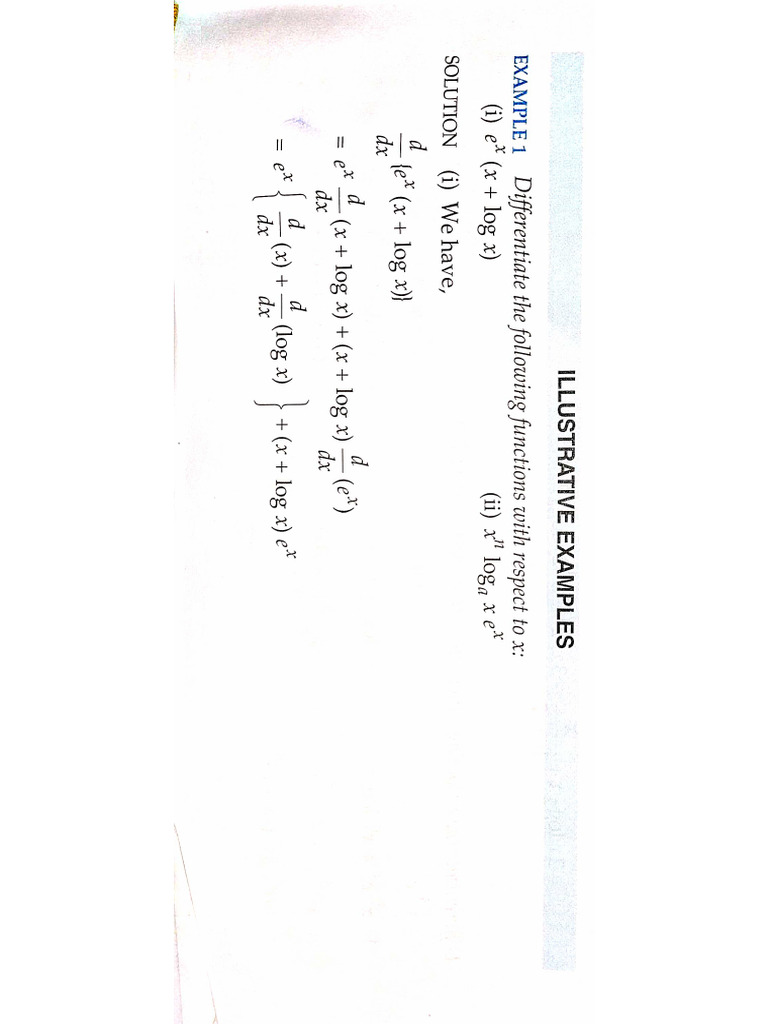 ILLUSTRATIVE EXAMPLES
EXAMPLE 1 Differentiate the following functions with respect to x:
(i) eˣ (x + log x) (ii) xⁿ logₐ x eˣ
SOLUTION (i) We have,
d/dx {eˣ (x + log x)}
= eˣ d/dx (x + log x) + (x + log x) d/dx (eˣ)
= eˣ { d/dx (x) + d/dx (log x) } + (x + log x) eˣ